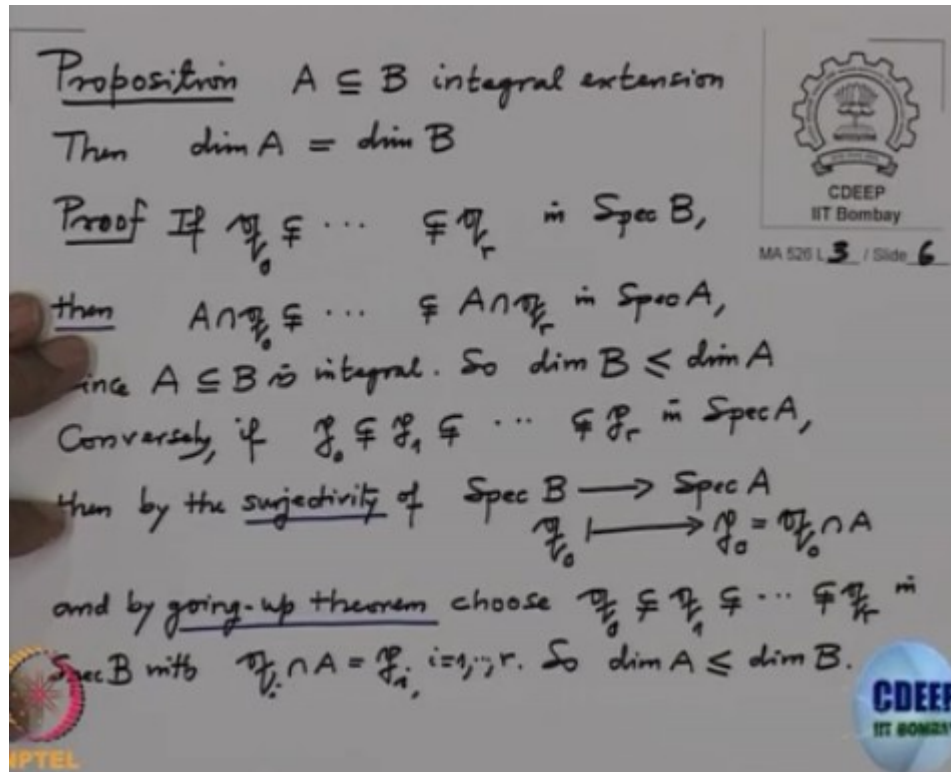 Proposition A ⊆ B integral extension
Then dim A = dim B
Proof If 𝔮₀ ⊊ ⋯ ⊊ 𝔮ᵣ in Spec B,
then A∩𝔮₀ ⊊ ⋯ ⊊ A∩𝔮ᵣ in Spec A,
ince A ⊆ B is integral. So dim B ≤ dim A
Conversely, if 𝔭₀ ⊊ 𝔭₁ ⊊ ⋯ ⊊ 𝔭ᵣ in Spec A,
then by the surjectivity of Spec B ⟶ Spec A
𝔮₀ ⟼ 𝔭₀ = 𝔮₀ ∩ A
and by going-up theorem choose 𝔮₀ ⊊ 𝔮₁ ⊊ ⋯ ⊊ 𝔮ᵣ in
Spec B with 𝔮ᵢ ∩ A = 𝔭ᵢ, i=1,..,r. So dim A ≤ dim B.
CDEEP
IIT Bombay
MA 526 L 3 / Slide 6
NPTEL
CDEEP
IIT BOMBAY